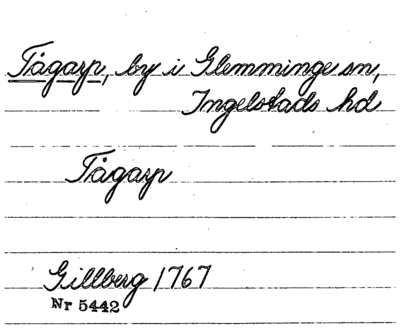 Tågarp, by i Glemminge sn,
Ingelstads hd
Tågarp
Gillberg 1767
Nr 5442